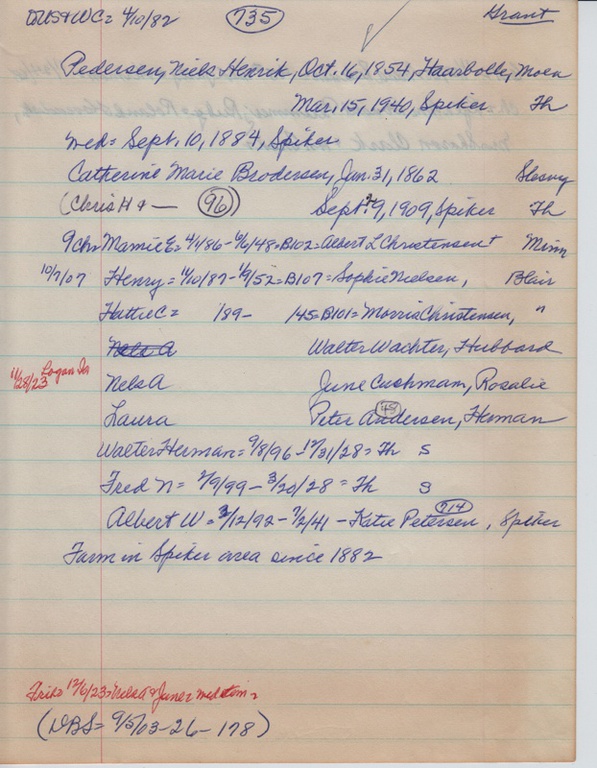 DUS&WC= 4/10/82 735 Grant
Pedersen, Niels Henrik, Oct. 16, 1854, Haarbolle, Moen
Mar. 15, 1940, Spiker Th
wed= Sept. 10, 1884, Spiker
Catherine Marie Brodersen, Jan. 31, 1862 Slesvig
(Chris H + — 96) Sept. 29, 1909, Spiker Th
9 ch= Mamie E= 4/1/86 - 6/6/48=B102=Albert L Christensen + Minn
10/7/07 Henry= 10/10/87-1/9/52=B107=Sophie Nielsen, Blair
Hattie C= /89- /45=B101=Morris Christensen, "
Nels A Walter Wachter, Hubbard
11/28/23 Logan Ia Nels A June Cushmam, Rosalie
Laura Peter Andersen, Herman 45
Walter Herman= 9/8/96-12/31/28=Th S
Fred N= 2/9/99-3/20/28=Th S
Albert W=3/12/92-7/2/41-Katie Petersen, Spiker 714
Farm in Spiker area since 1882
12/6/23=Nels A & June=
(DBS= 9/5/03-26-178)